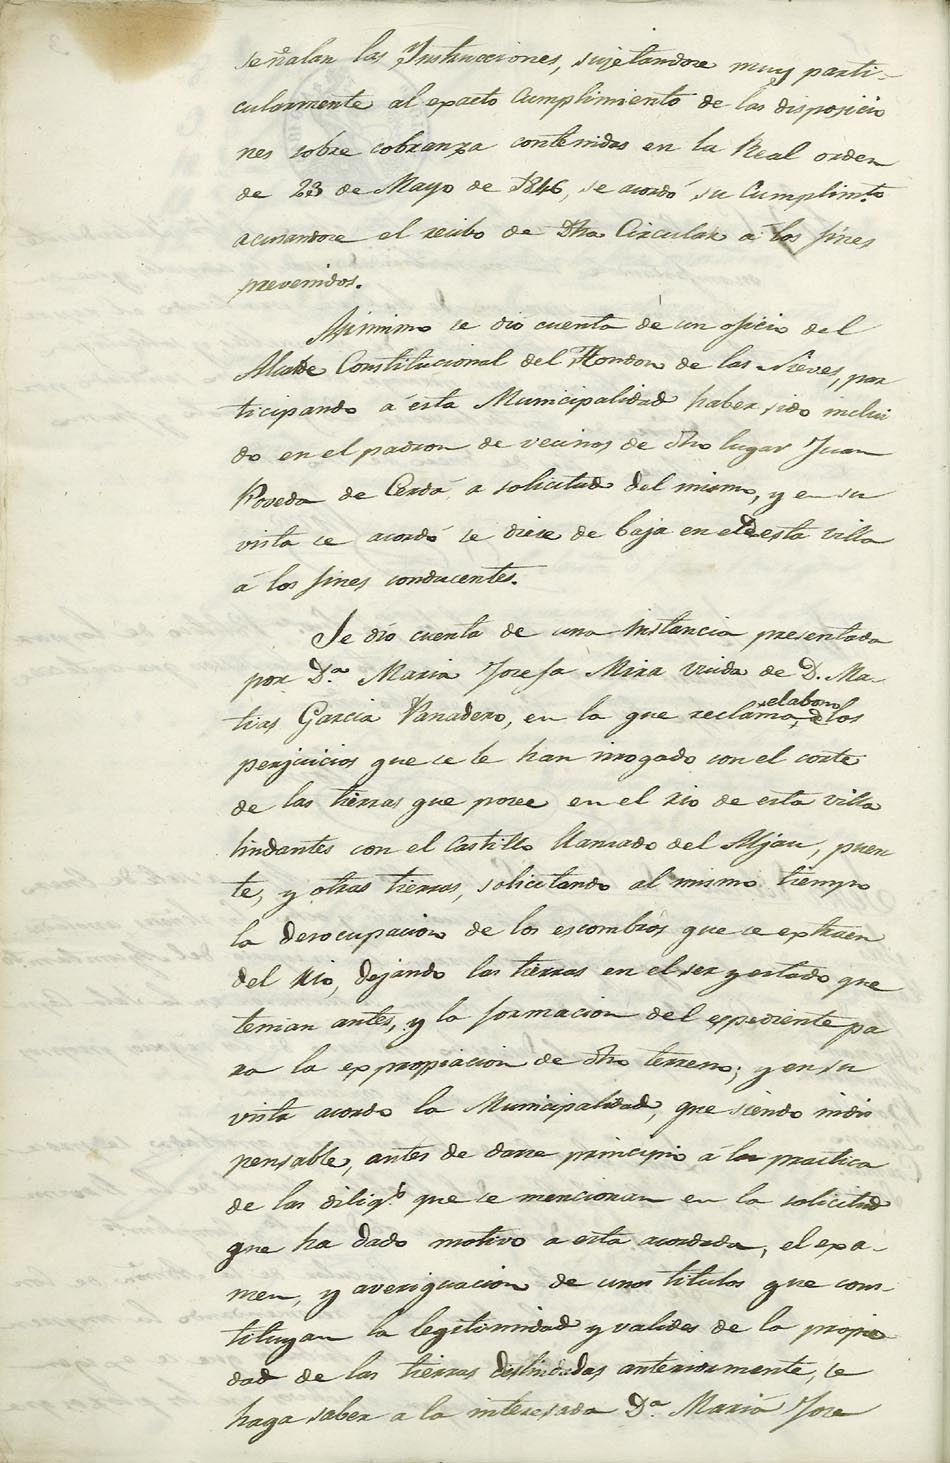 señalan las Ynstrucciones, sujetandose muy parti-
cularmente al exacto Cumplimiento de las disposicio
nes sobre cobranza contenidas en la Real orden
de 23 de Mayo de 1846, se acordó su Cumplimto
acusandose el recibo de dha Circular a los fines
prevenidos.
Asimismo se dio cuenta de un oficio del
Alcalde Constitucional del Hondon de las Nieves, par
ticipando á esta Municipalidad haber sido inclui
do en el padron de vecinos de dho lugar Juan
Poveda de Cerdá a solicitud del mismo, y en su
vista se acordó se diese de baja en el de esta villa
á los fines conducentes.
Se dió cuenta de una instancia presentada
por D.ª Maria Josefa Mira viuda de D. Ma-
tias Garcia Panadero, en la que reclama, el abono de los
perjuicios que se le han irrogado con el corte
de las tierras que posee en el rio de esta villa
lindantes con el Castillo llamado del Aljau, puen
te, y otras tierras, solicitando al mismo tiempo
la desocupacion de los escombros que se extraen
del Rio, dejando las tierras en el ser y estado que
tenian antes, y la formacion del espediente pa
ra la expropiacion de dho terreno; y en su
vista acordo la Municipalidad, que siendo indis
pensable, antes de darse principio á la practica
de las dilig.s que se mencionan en la solicitud
que ha dado motivo a esta acordada, el exa-
men, y averiguacion de unos titulos que cons-
tituyan la legitimidad y valides de la propie
dad de las tierras deslindadas anteriormente, se
haga saber a la interesada D.ª Maria Jose